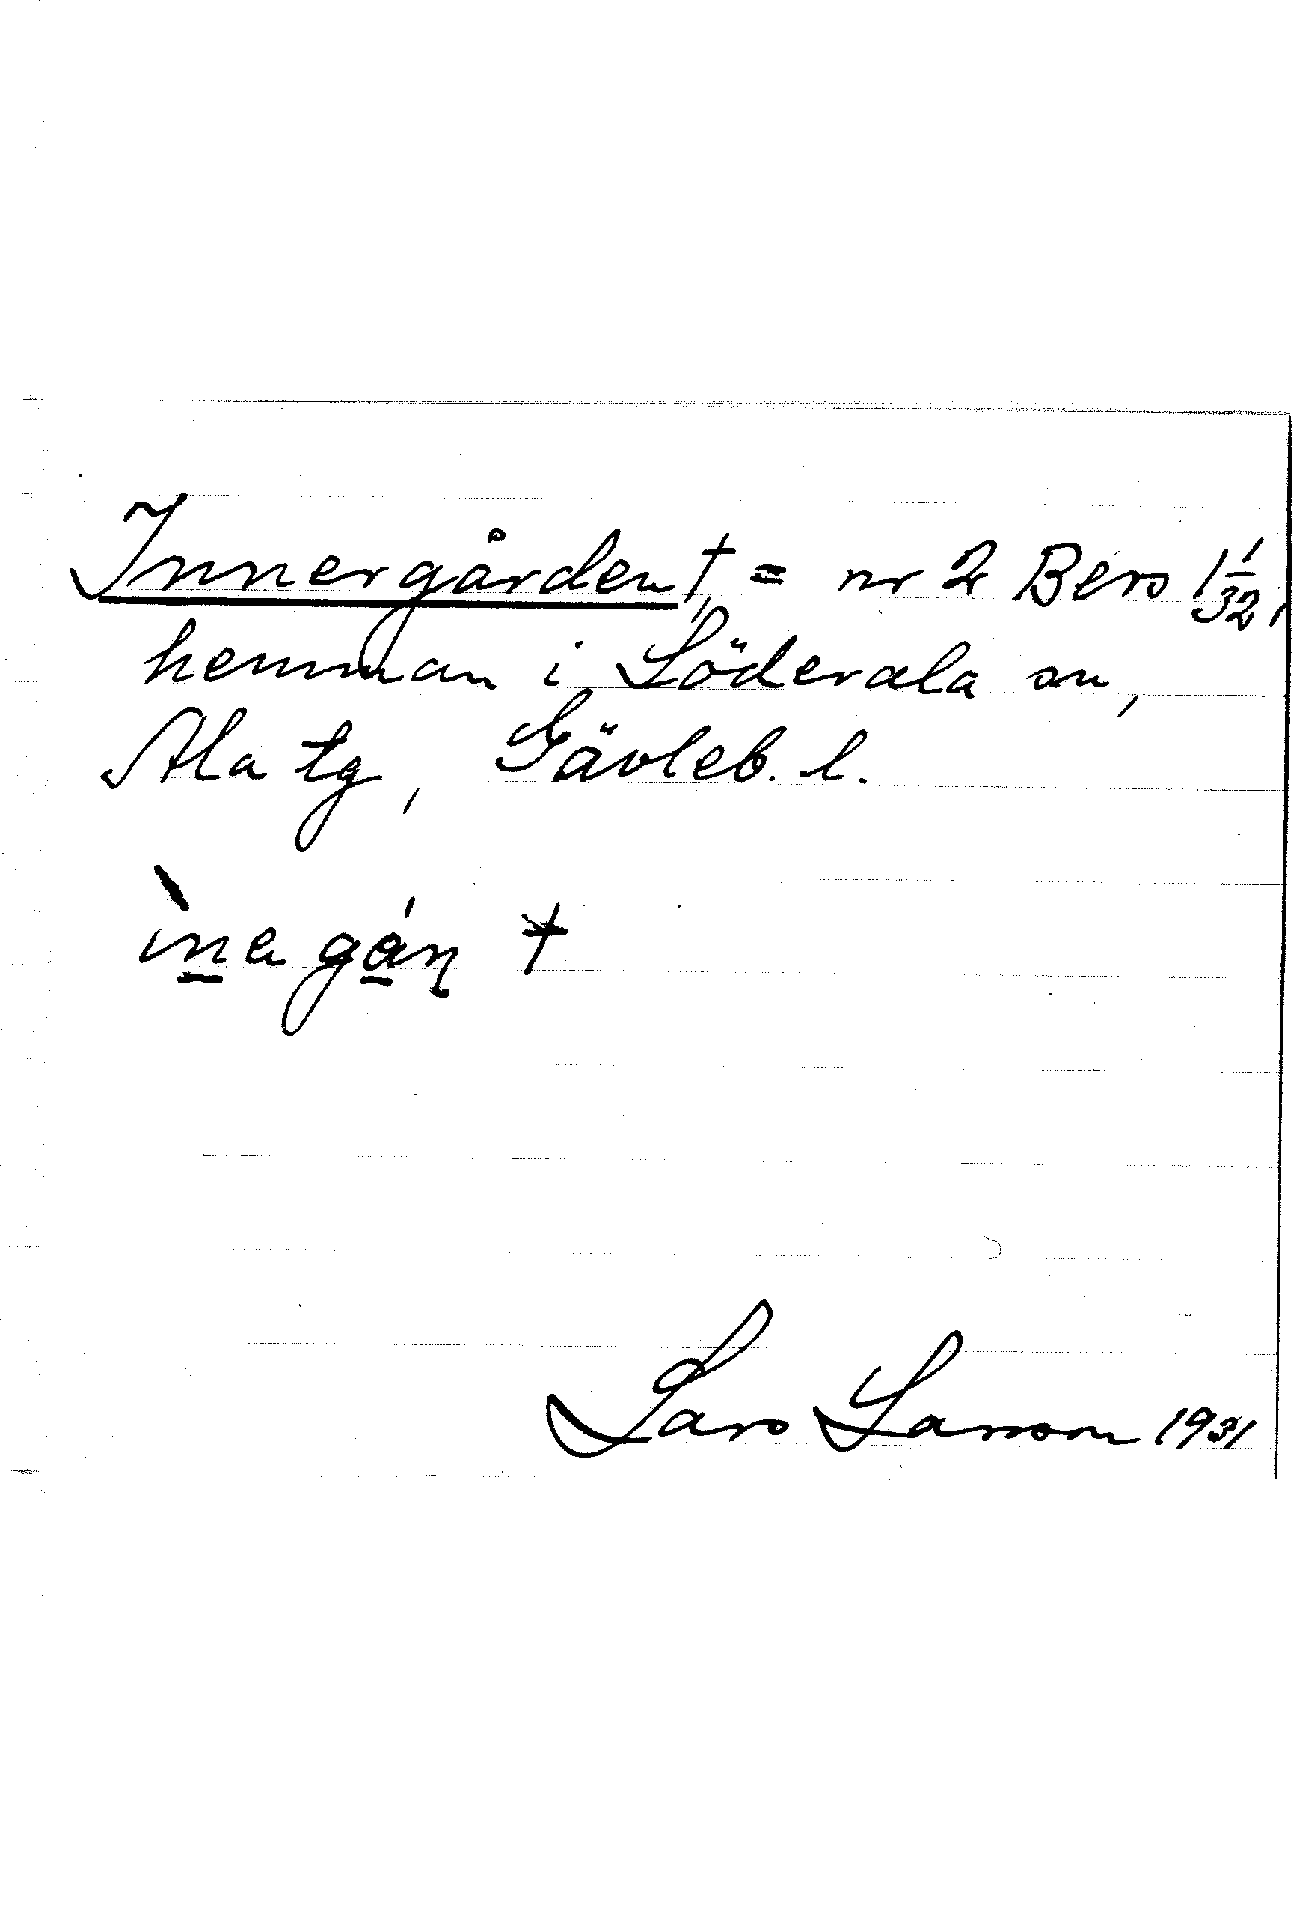 Innergården † = nr 2 Bers 1 1/32,
hemman i Söderala sn,
Ala tg, Gävleb. l.
ìnagán †
Lars Larsson 1931